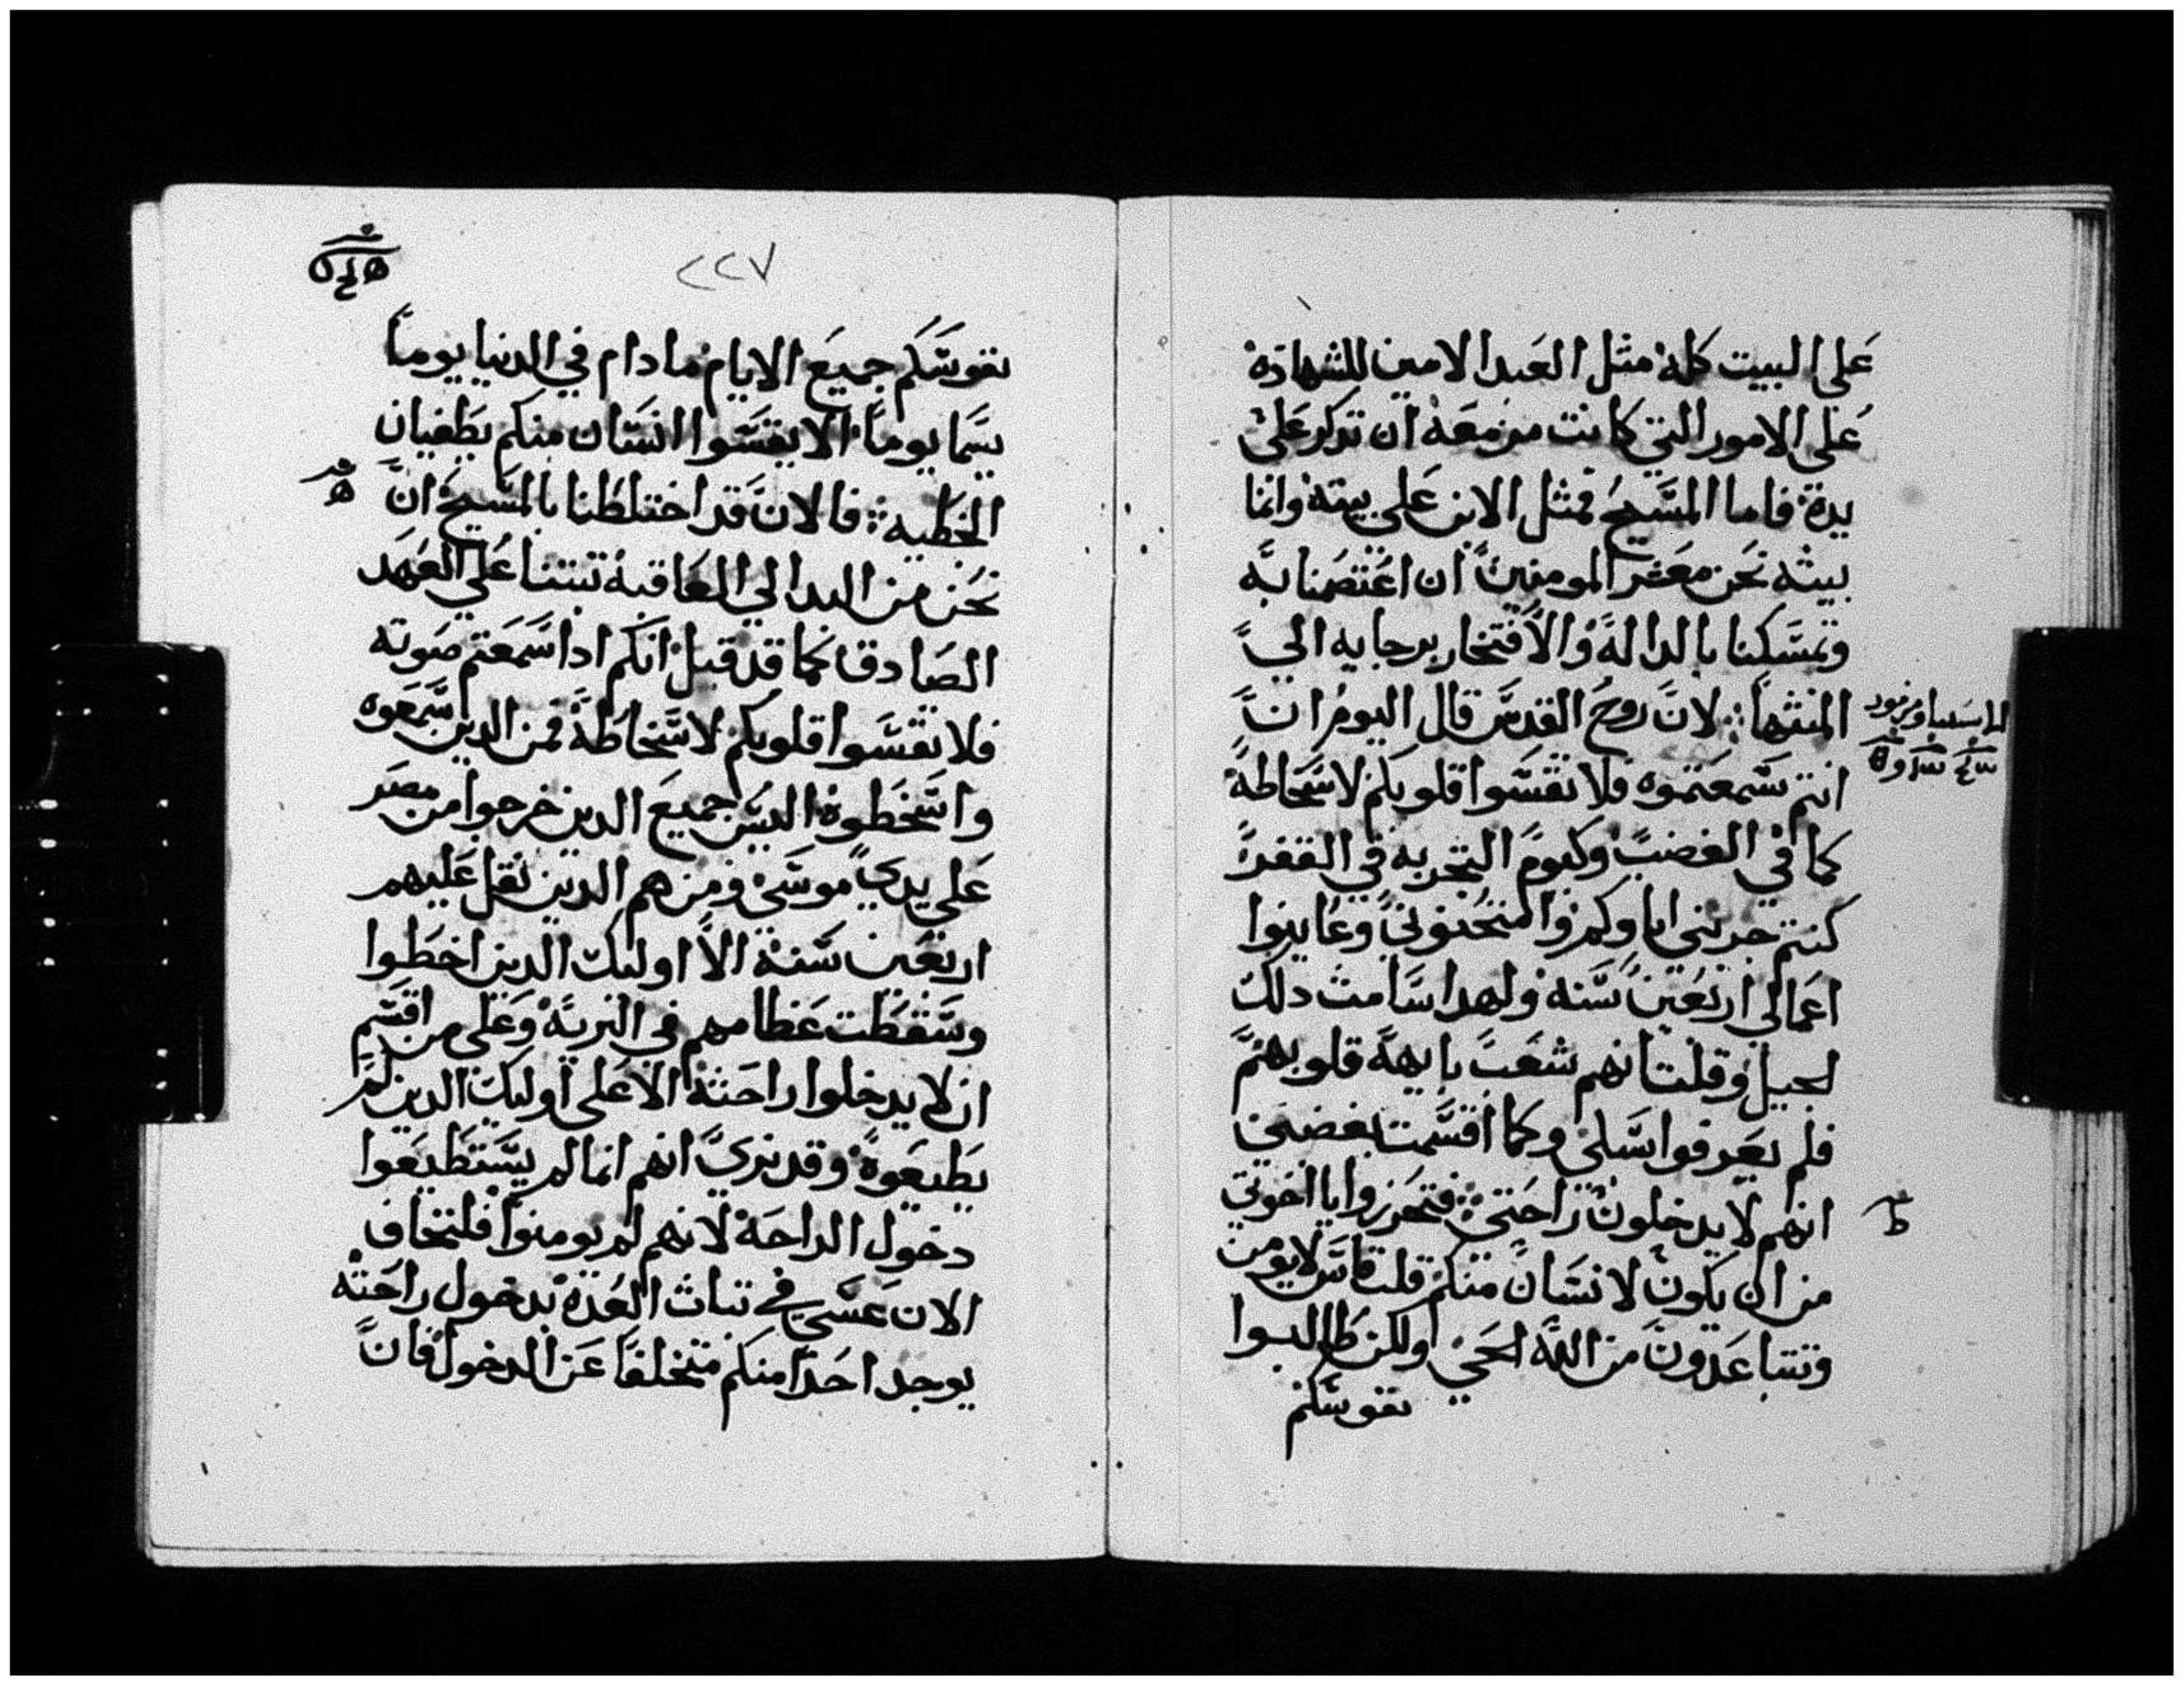 علي البيت كله مثل العبد الامين للشهادة
علي الامور التي كانت مزمعه ان تدكر علي
يدة فاما المسيح فمثل الابن علي بيته وانما
بيته نحن معشر المومنين ان اعتصمنا به
وتمسكنا بالدالة والافتخار برجايه الي
المنتها لان روح القدس قال اليوم ان
انتم سمعتموه فلا تقسوا قلوبكم لاسخاطه
كما في الغضب وكيوم التجربه في القفر
كنتم جربني اباوكم وامتحنوني وعاينوا
اعمالي اربعين سنه ولهدا سامت دلك
الجيل وقلت انهم شعب تايهة قلوبهم
فلم يعرفوا سبلي وكما اقسمت بغضبي
انهم لا يدخلون راحتي فتحرزوا يا اخوتي
من ان يكون لانسان منكم قلب قاس لا يومن
وتتباعدون من الله الحي ولكن طالبوا
نفوسكم
٢٢٧
نفوسكم جميع الايام ما دام في الدنيا يوما
يسما يوما الا يقسوا انسان منكم بطغيان
الخطيه فالان قد اختلطنا بالمسيح ان
نحن من البدا الي العاقبه تبتنا علي العهد
الصادق كما قد قيل انكم ادا سمعتم صوته
فلا تقسوا قلوبكم لاسخاطه فمن الدين سمعوه
واسخطوه اليس جميع الدين خرجوا من مصر
علي يدي موسي ومن هم الدين تقل عليهم
اربعين سنه الا اوليك الدين اخطوا
وسقطت عظامهم في البرية وعلي من اقسم
ان لا يدخلوا راحته الا علي اوليك الدين لم
يطيعوة وقد نري انهم انما لم يستطيعوا
دخول الراحة لانهم لم يومنوا فلنخاف
الان عسي في تبات العدة بدخول راحته
يوجد احدا منكم متخلفا عن الدخول فان